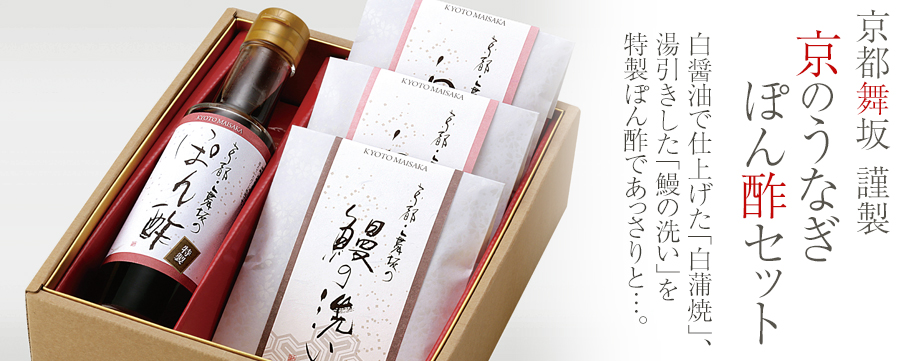 京都舞坂 謹製
京のうなぎ
ぽん酢セット
白醤油で仕上げた「白蒲焼」、
湯引きした「鰻の洗い」を
特製ぽん酢であっさりと…。
KYOTO MAISAKA
京都・舞坂の
KYOTO MAISAKA
京都・舞坂の
KYOTO MAISAKA
京都・舞坂の
鰻の洗い
KYOTO MAISAKA
京都・舞坂の
ぽん酢
特製